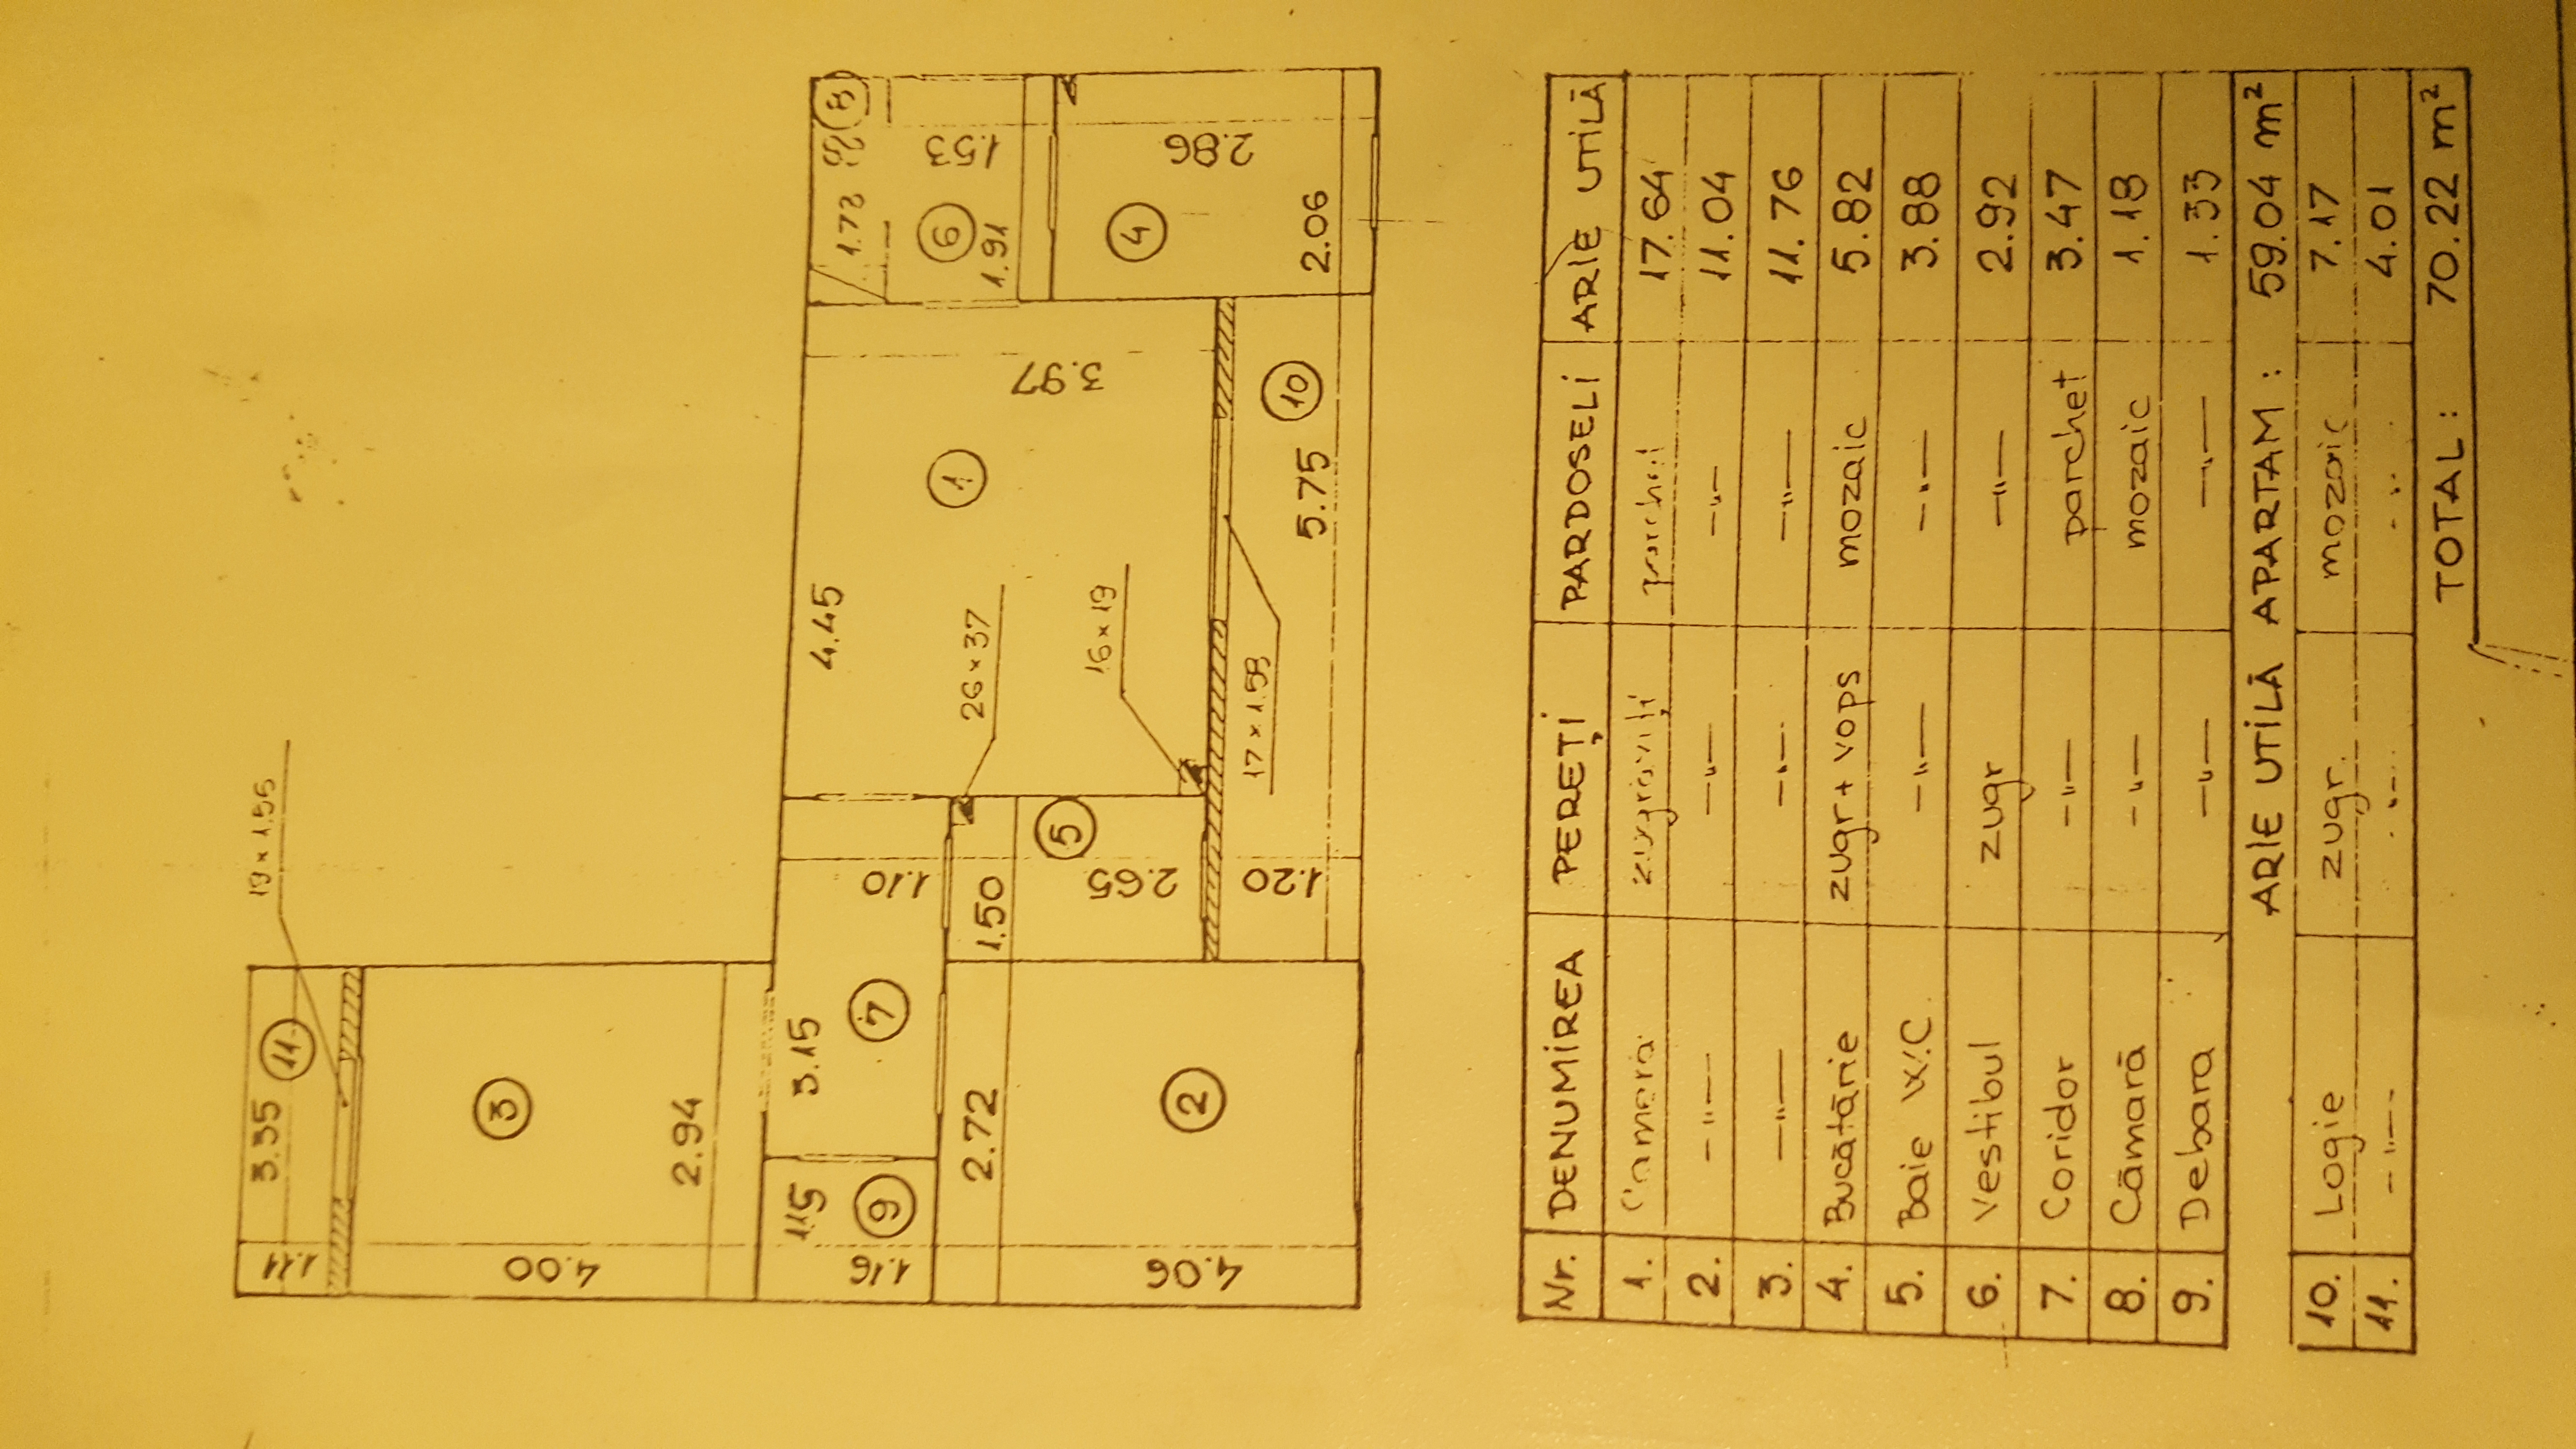 19 x 1.56
3.35
11
1.11
3
4.00
2.94
3.15
7
1.15
9
1.16
1.10
2.72
2
4.06
1.50
5
2.65
1.20
4.45
1
3.97
26 x 37
16 x 19
17 x 1.58
5.75
10
1.72
8
1.53
6
1.91
4
2.86
2.06
Nr. DENUMIREA PEREȚI PARDOSELI ARIE UTILĂ
1. Camera zugrăviți parchet 17.64
2. —"— —"— —"— 11.04
3. —"— —"— —"— 11.76
4. Bucătărie zugr+vops mozaic 5.82
5. Baie W.C. —"— —"— 3.88
6. Vestibul zugr —"— 2.92
7. Coridor —"— parchet 3.47
8. Cămară —"— mozaic 1.18
9. Debara —"— —"— 1.33
ARIE UTILĂ APARTAM: 59.04 m²
10. Logie zugr. mozaic 7.17
11. —"— —"— —"— 4.01
TOTAL: 70.22 m²